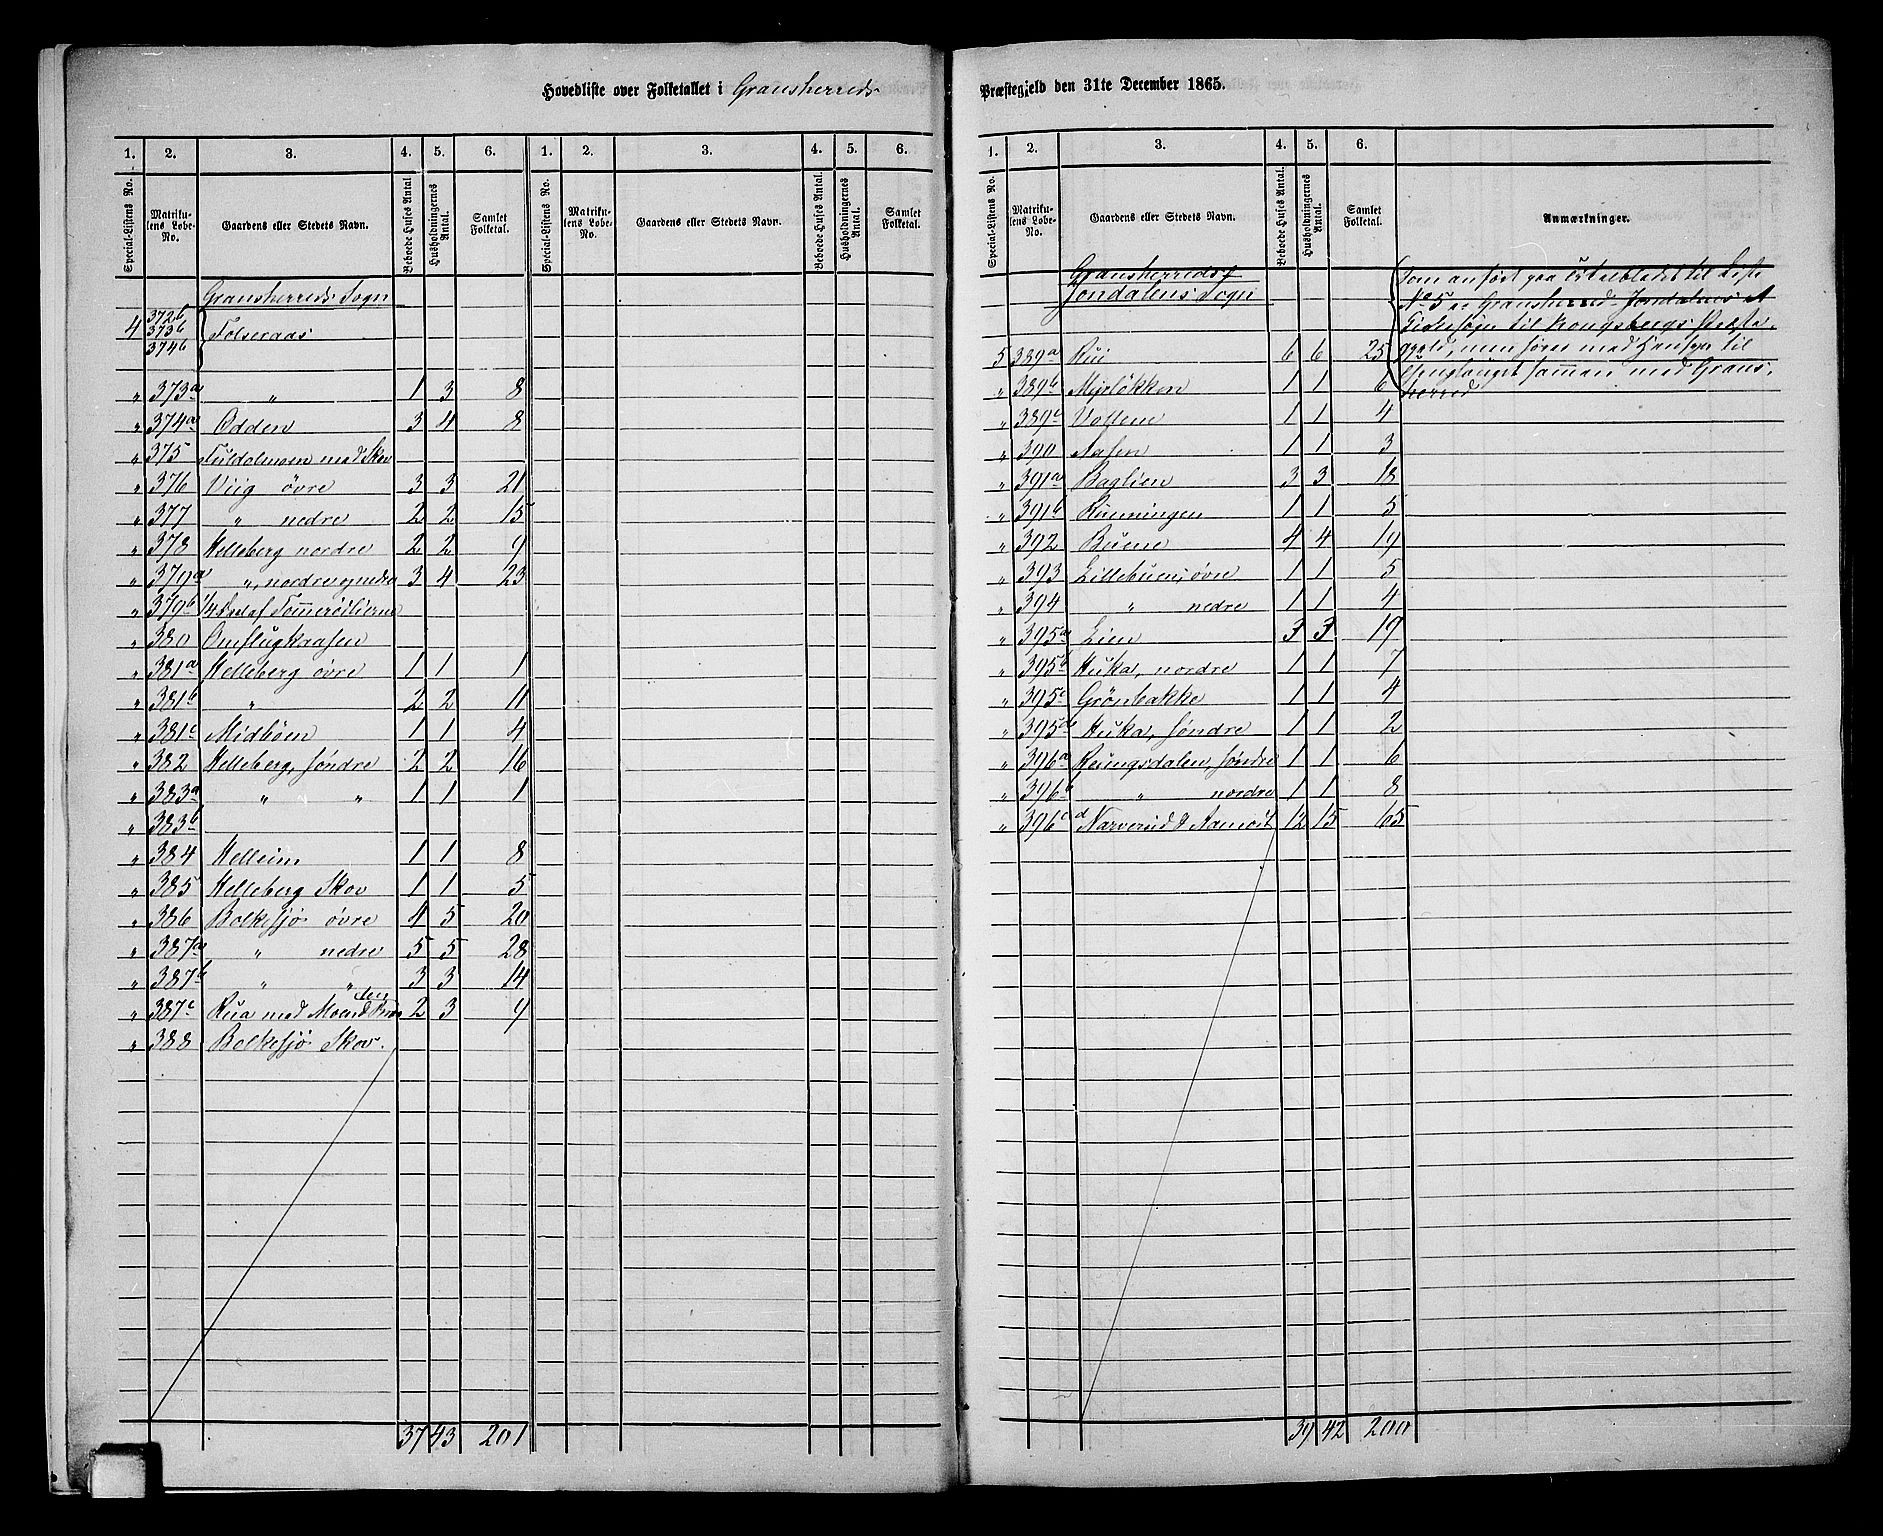 Hovedliste over Folketallet i Gransherreds
1. 2. 3. 4. 5. 6. 1. 2. 3. 4. 5. 6.
Special-Listens No. Matrikulens Løbe-No. Gaardens eller Stedets Navn. Beboede Huses Antal. Husholdningernes Antal. Samlet Folketal. Special-Listens No. Matrikulens Løbe-No. Gaardens eller Stedets Navn. Beboede Huses Antal. Husholdningernes Antal. Samlet Folketal.
Gransherreds Sogn
372b
4 373b Folseraas
374b
" 373a " 1 3 8
" 374a Odden 3 4 8
" 375 Fuldalmoen med Skov
" 376 Viig øvre 3 3 21
" 377 " nedre 2 2 15
" 378 Helleberg nordre 2 2 9
" 379a " nordre og nedre 3 4 23
" 379b 1/4 Deel af
" 380 Omflugkaasen
" 381a Helleberg øvre 1 1 1
" 381b " 2 2 11
" 381c Midbøen 1 1 4
" 382 Helleberg, søndre 2 2 16
" 383a " " 1 1 1
" 383b
" 384 Helleim 1 1 8
" 385 Helleberg Skov 1 1 5
" 386 Bolkesjø øvre 4 5 20
" 387a " nedre 5 5 28
" 387b " " 3 3 14
" 387c Rua med 2 3 9
" 388 Bolkesjø Skov.
37 43 201
Præstegjeld den 31te December 1865.
1. 2. 3. 4. 5. 6.
Special-Listens No. Matrikulens Løbe-No. Gaardens eller Stedets Navn. Beboede Huses Antal. Husholdningernes Antal. Samlet Folketal. Anmærkninger.
Gransherreds
Jondalens Sogn
Som anført paa til Liste
No 5 er Gransherred-Jondalens
til Kongsbergs Præste-
gjeld, men føres med Hensyn til
sammen med Grans-
herred
5 389a Rui 6 6 25
" 389b Myrløkken 1 1 6
" 389c Vollene 1 1 4
" 390 Aasen 1 1 3
" 391a Baglien 3 3 18
" 391b Rudningen 1 1 5
" 392 Buene 4 4 19
" 393 Lillebuen, øvre 1 1 5
" 394 " nedre 1 1 4
" 395a Lien 3 3 19
" 395b Huka, nordre 1 1 7
" 395c Grønbakke 1 1 4
" 395d Huka, søndre 1 1 2
" 396a Reiingsdalen, søndre 1 1 6
" 396b " nordre 1 1 8
" 396c d Narverud & Aamodt 12 15 65
39 42 200